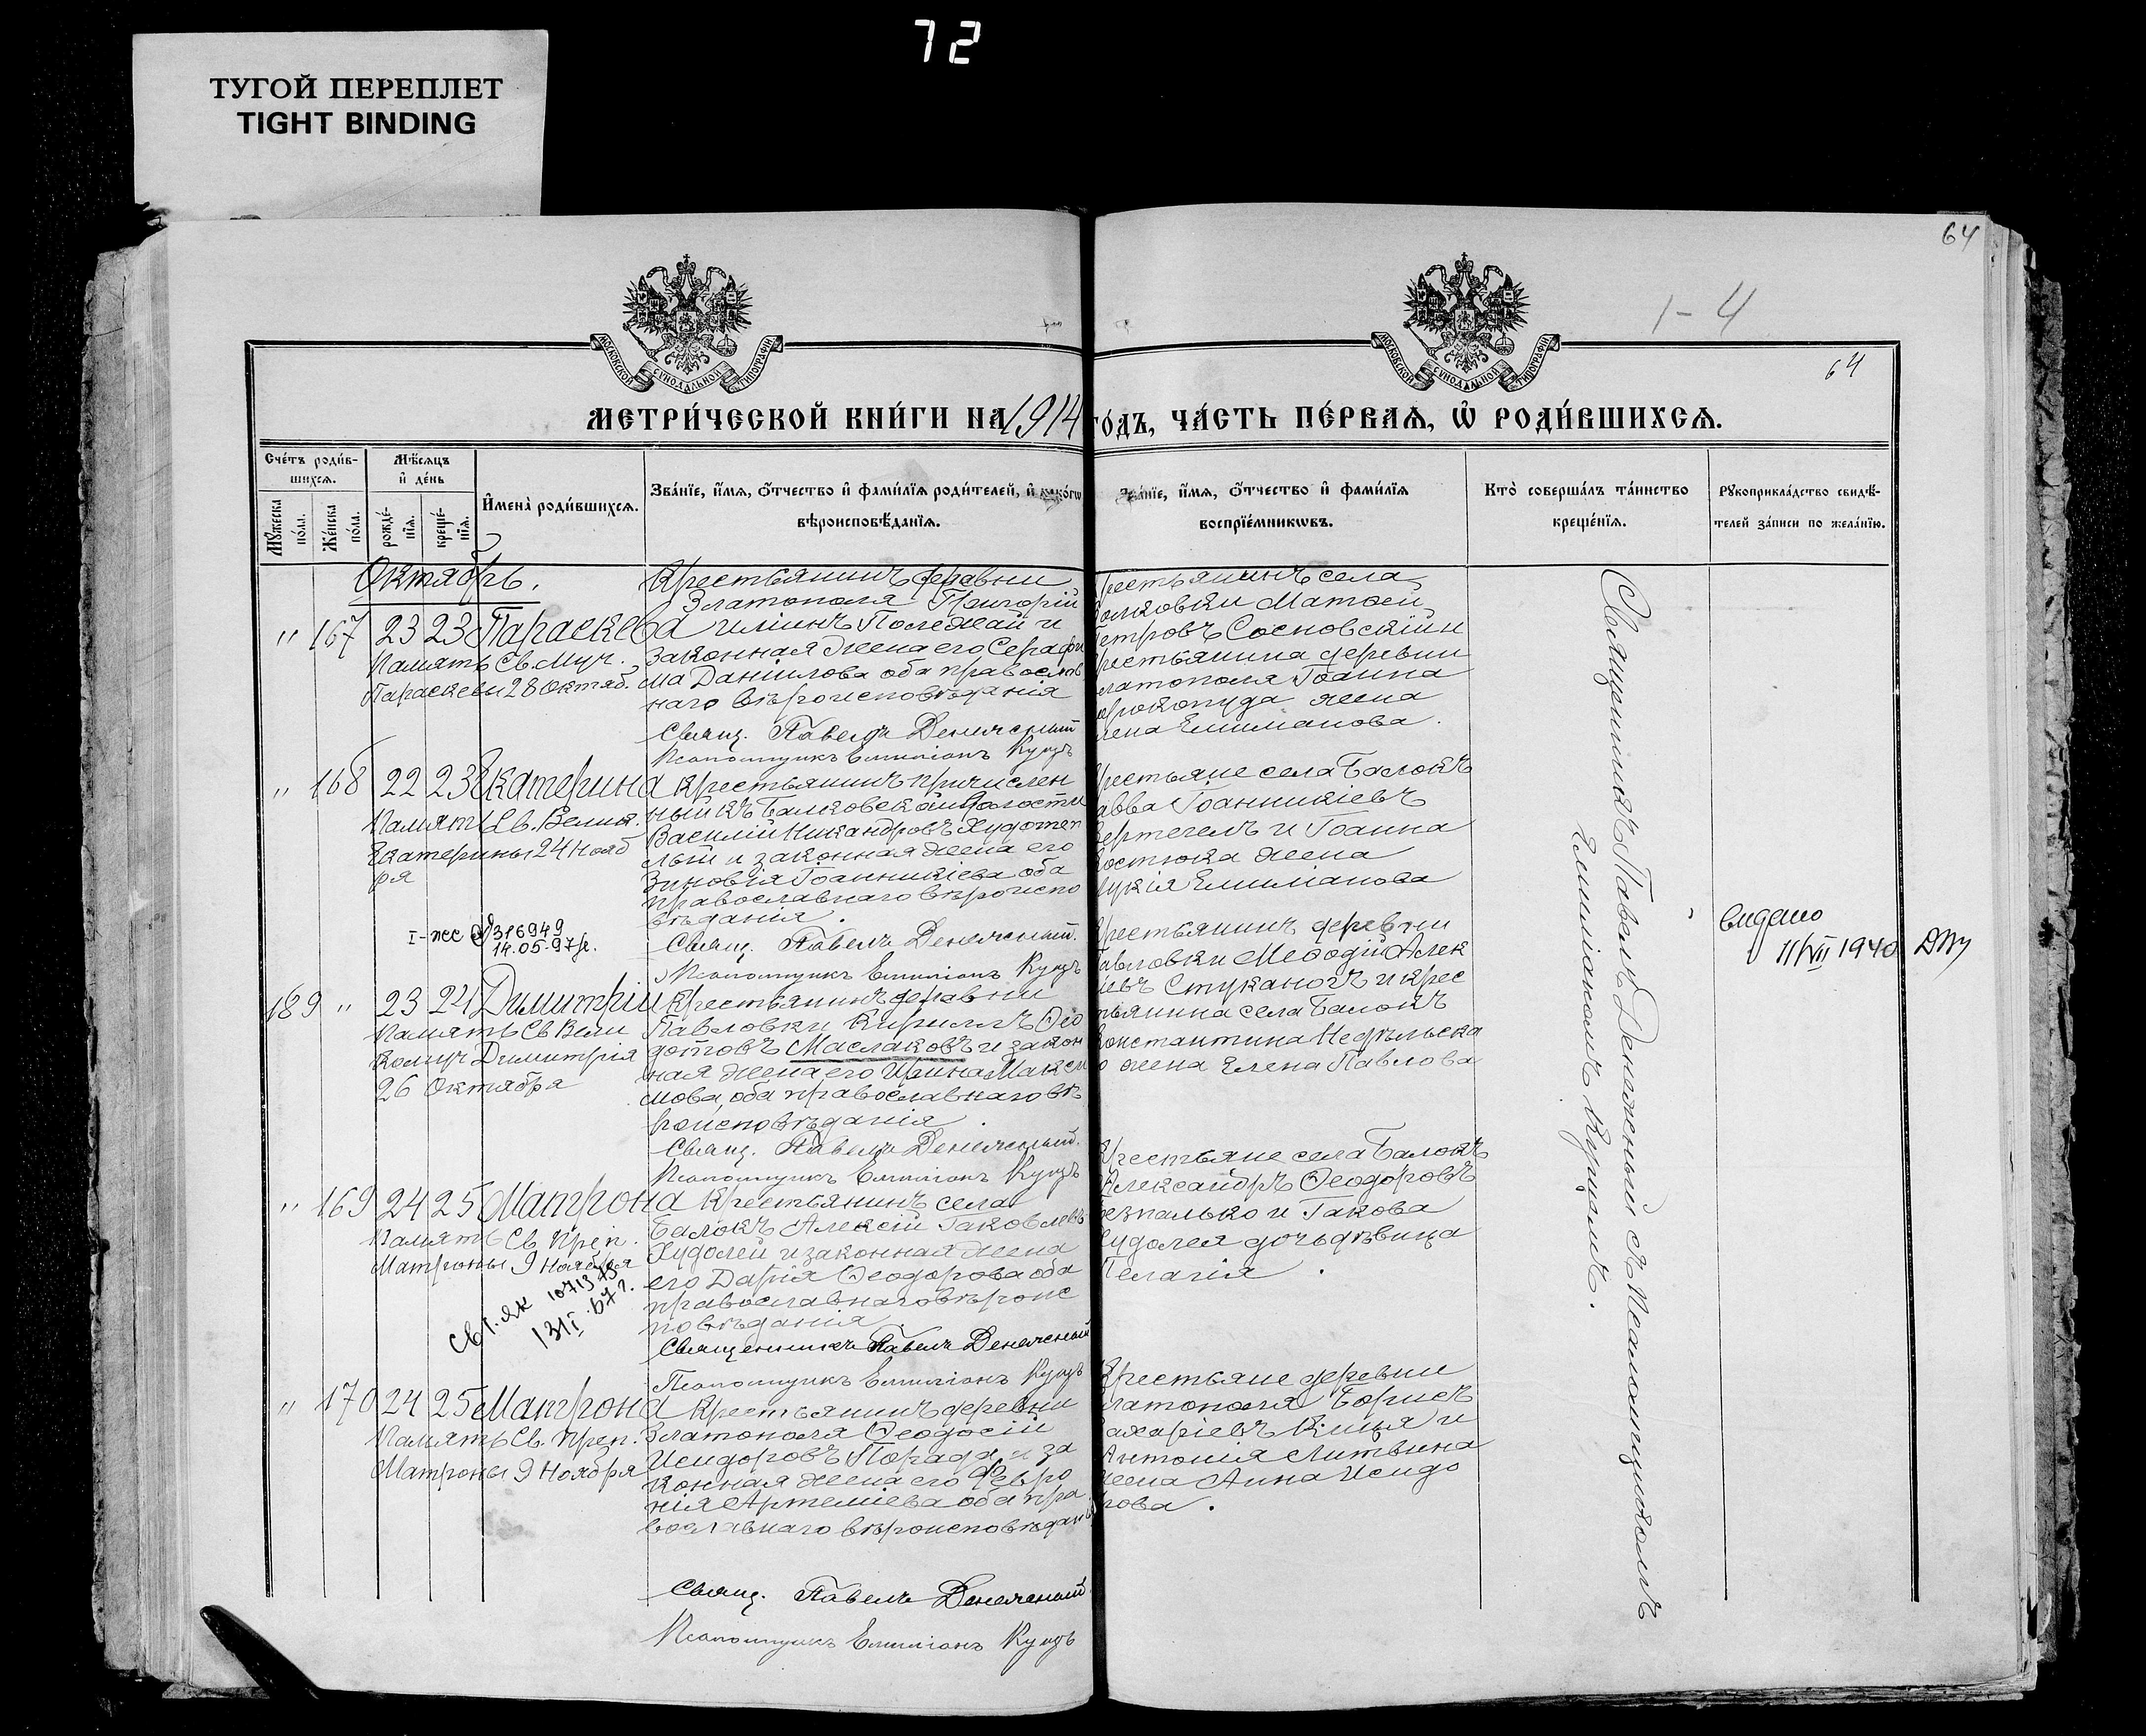 72
ТУГОЙ ПЕРЕПЛЕТ
TIGHT BINDING
64
1-4
64
МОСКОВСКОЙ СѴНОДАЛЬНОЙ ТИПОГРАФІИ
МОСКОВСКОЙ СѴНОДАЛЬНОЙ ТИПОГРАФІИ
МЕТРИ́ЧЕСКОЙ КНИ́ГИ НА 1914 ГО́ДЪ, ЧА́СТЬ ПЕ́РВАѦ, Ѡ҆ РОДИ́ВШИХСѦ.
Сче́тъ роди́в-
шихсѧ.
Мꙋ́жеска по́ла.
Же́нска по́ла.
Мѣ́сѧцъ
и҆ де́нь
рожде́-
нїѧ.
креще́-
нїѧ.
И҆мена̀ роди́вшихсѧ.
Зва́нїе, и҆́мѧ, ѻ҆́тчество и҆ фами́лїѧ роди́телей, и҆ како́гѡ
вѣроисповѣ́данїѧ.
Зва́нїе, и҆́мѧ, ѻ҆́тчество и҆ фами́лїѧ
воспрїе́мникѡвъ.
Кто̀ соверша́лъ та́инство
креще́нїѧ.
Рꙋкоприкла́дство свидѣ́-
телей за́писи по жела́нїю.
Октябрь.
" 167 23 23 Параскева
Память Св. Муч.
Параскевы 28 Октяб.
Крестьянинъ деревни
Златополя Григорій
Иліинъ Полежай и
законная жена его Серафи
ма Даніилова оба православ
наго вѣроисповѣданія
Свящ. Павелъ Денежный
Псаломщикъ Емиліанъ Куцъ
рестьянинъ села
алковки Матѳей
етровъ Сосновскій и
рестьянина деревни
латополя Іоанна
жена
лена Емиліанова.
" 168 22 23 Екатерина
Память Св. Велик.
Екатерины 24 Нояб
ря
Крестьянинъ причислен
ный къ Балковской Волости
Василій Никандровъ Худотеп
лый и законная жена его
Зиновія Іоанникіева оба
православнаго вѣроиспо
вѣданія.
Свящ. Павелъ Денежный.
Псаломщикъ Емиліанъ Куцъ
рестьяне села Балокъ
авва Іоанникіевъ
ертегелъ и Іоанна
остюка жена
укія Емиліанова
I-жс 316949
14.05.97г.
189 " 23 24 Димитрій
Память Св Вели
комуч Димитрія
26 Октября
Крестьянинъ деревни
Павловки Кириллъ Ѳео
дотовъ Маслаковъ и закон
ная жена его Ирина Макси
мова, оба православнаго вѣ
роисповѣданія.
Свящ. Павелъ Денежный.
Псаломщикъ Емиліанъ Куцъ
рестьянинъ деревни
авловки Меѳодій Алек
ѣевъ Стуканогъ и крес
тьянина села Балокъ
онстантина Недѣльска
о жена Елена Павлова
видано
11/VII 1940
" 169 24 25 Матрона
Память Св. Преп.
Матроны 9 Ноября
Крестьянинъ села
Балокъ Алексій Іаковлевъ
Худолей и законная жена
его Дарія Ѳеодорова оба
православнаго вѣроис
повѣданія.
Священникъ Павелъ Денежный
Псаломщикъ Емиліанъ Куцъ
Крестьяне села Балокъ
Александръ Ѳеодоровъ
езпалько и Іакова
удолея дочь дѣвица
Пелагія.
" 170 24 25 Матрона
Память Св. Преп.
Матроны 9 Ноября
Крестьянинъ деревни
Златополя Ѳеодосій
Исидоровъ Порада и за
конная жена его Февро
нія Артеміева оба пра
вославнаго вѣроисповѣдан
Свящ. Павелъ Денежный
Псаломщикъ Емиліанъ Куцъ
Крестьяне деревни
латополя Борисъ
ахаріевъ Кица и
Антонія Литвина
жена Анна Исидо
рова.
Священникъ Павелъ Денежный съ Псаломщикомъ
Емиліаномъ Куцомъ.